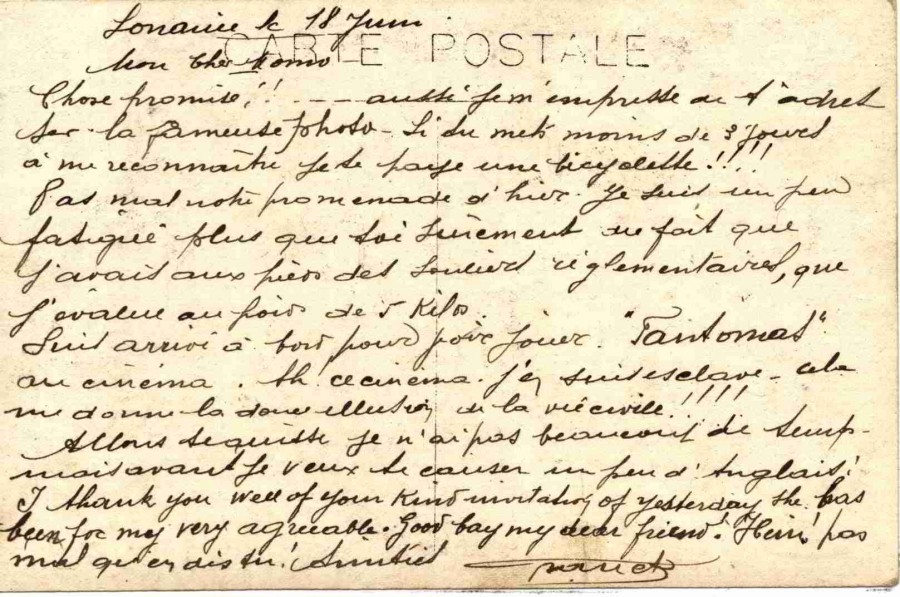 Lorraine le 18 Juin
CARTE POSTALE
Mon Cher Momo
Chose promise,!! --- aussi je m'empresse de t'adres
ser la fameuse photo - Si tu mets moins de 3 jours
à me reconnaître je te paye une bicyclette!!!!
Pas mal notre promenade d'hier. Je suis un peu
fatigué plus que toi sûrement du fait que
j'avais aux pieds des souliers réglementaires, que
j'évalue au poids de 5 Kilos.
Suis arrivé à bord pour voir jouer. "Fantomas"
au cinéma. Ah! ce cinéma. j'en suis esclave - cela
me donne la douce illusion de la vie civile!!!!
Allons te quitte je n'ai pas beaucoup de temps -
mais avant je veux te causer un peu d'Anglais!
I thank you well of your kind invitation of yesterday she has
been for my very agreeable. Good bay my dear friend! Hein! pas
mal qu'en dis tu! Amitiés